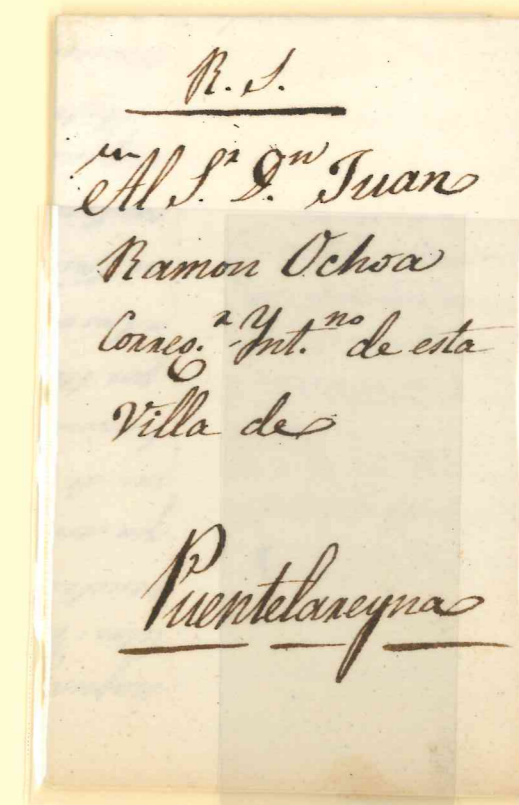 R. S.
Al S.r D.n Juan
Ramon Ochoa
Correg.r Ynt.no de esta
Villa de
Puentelareyna